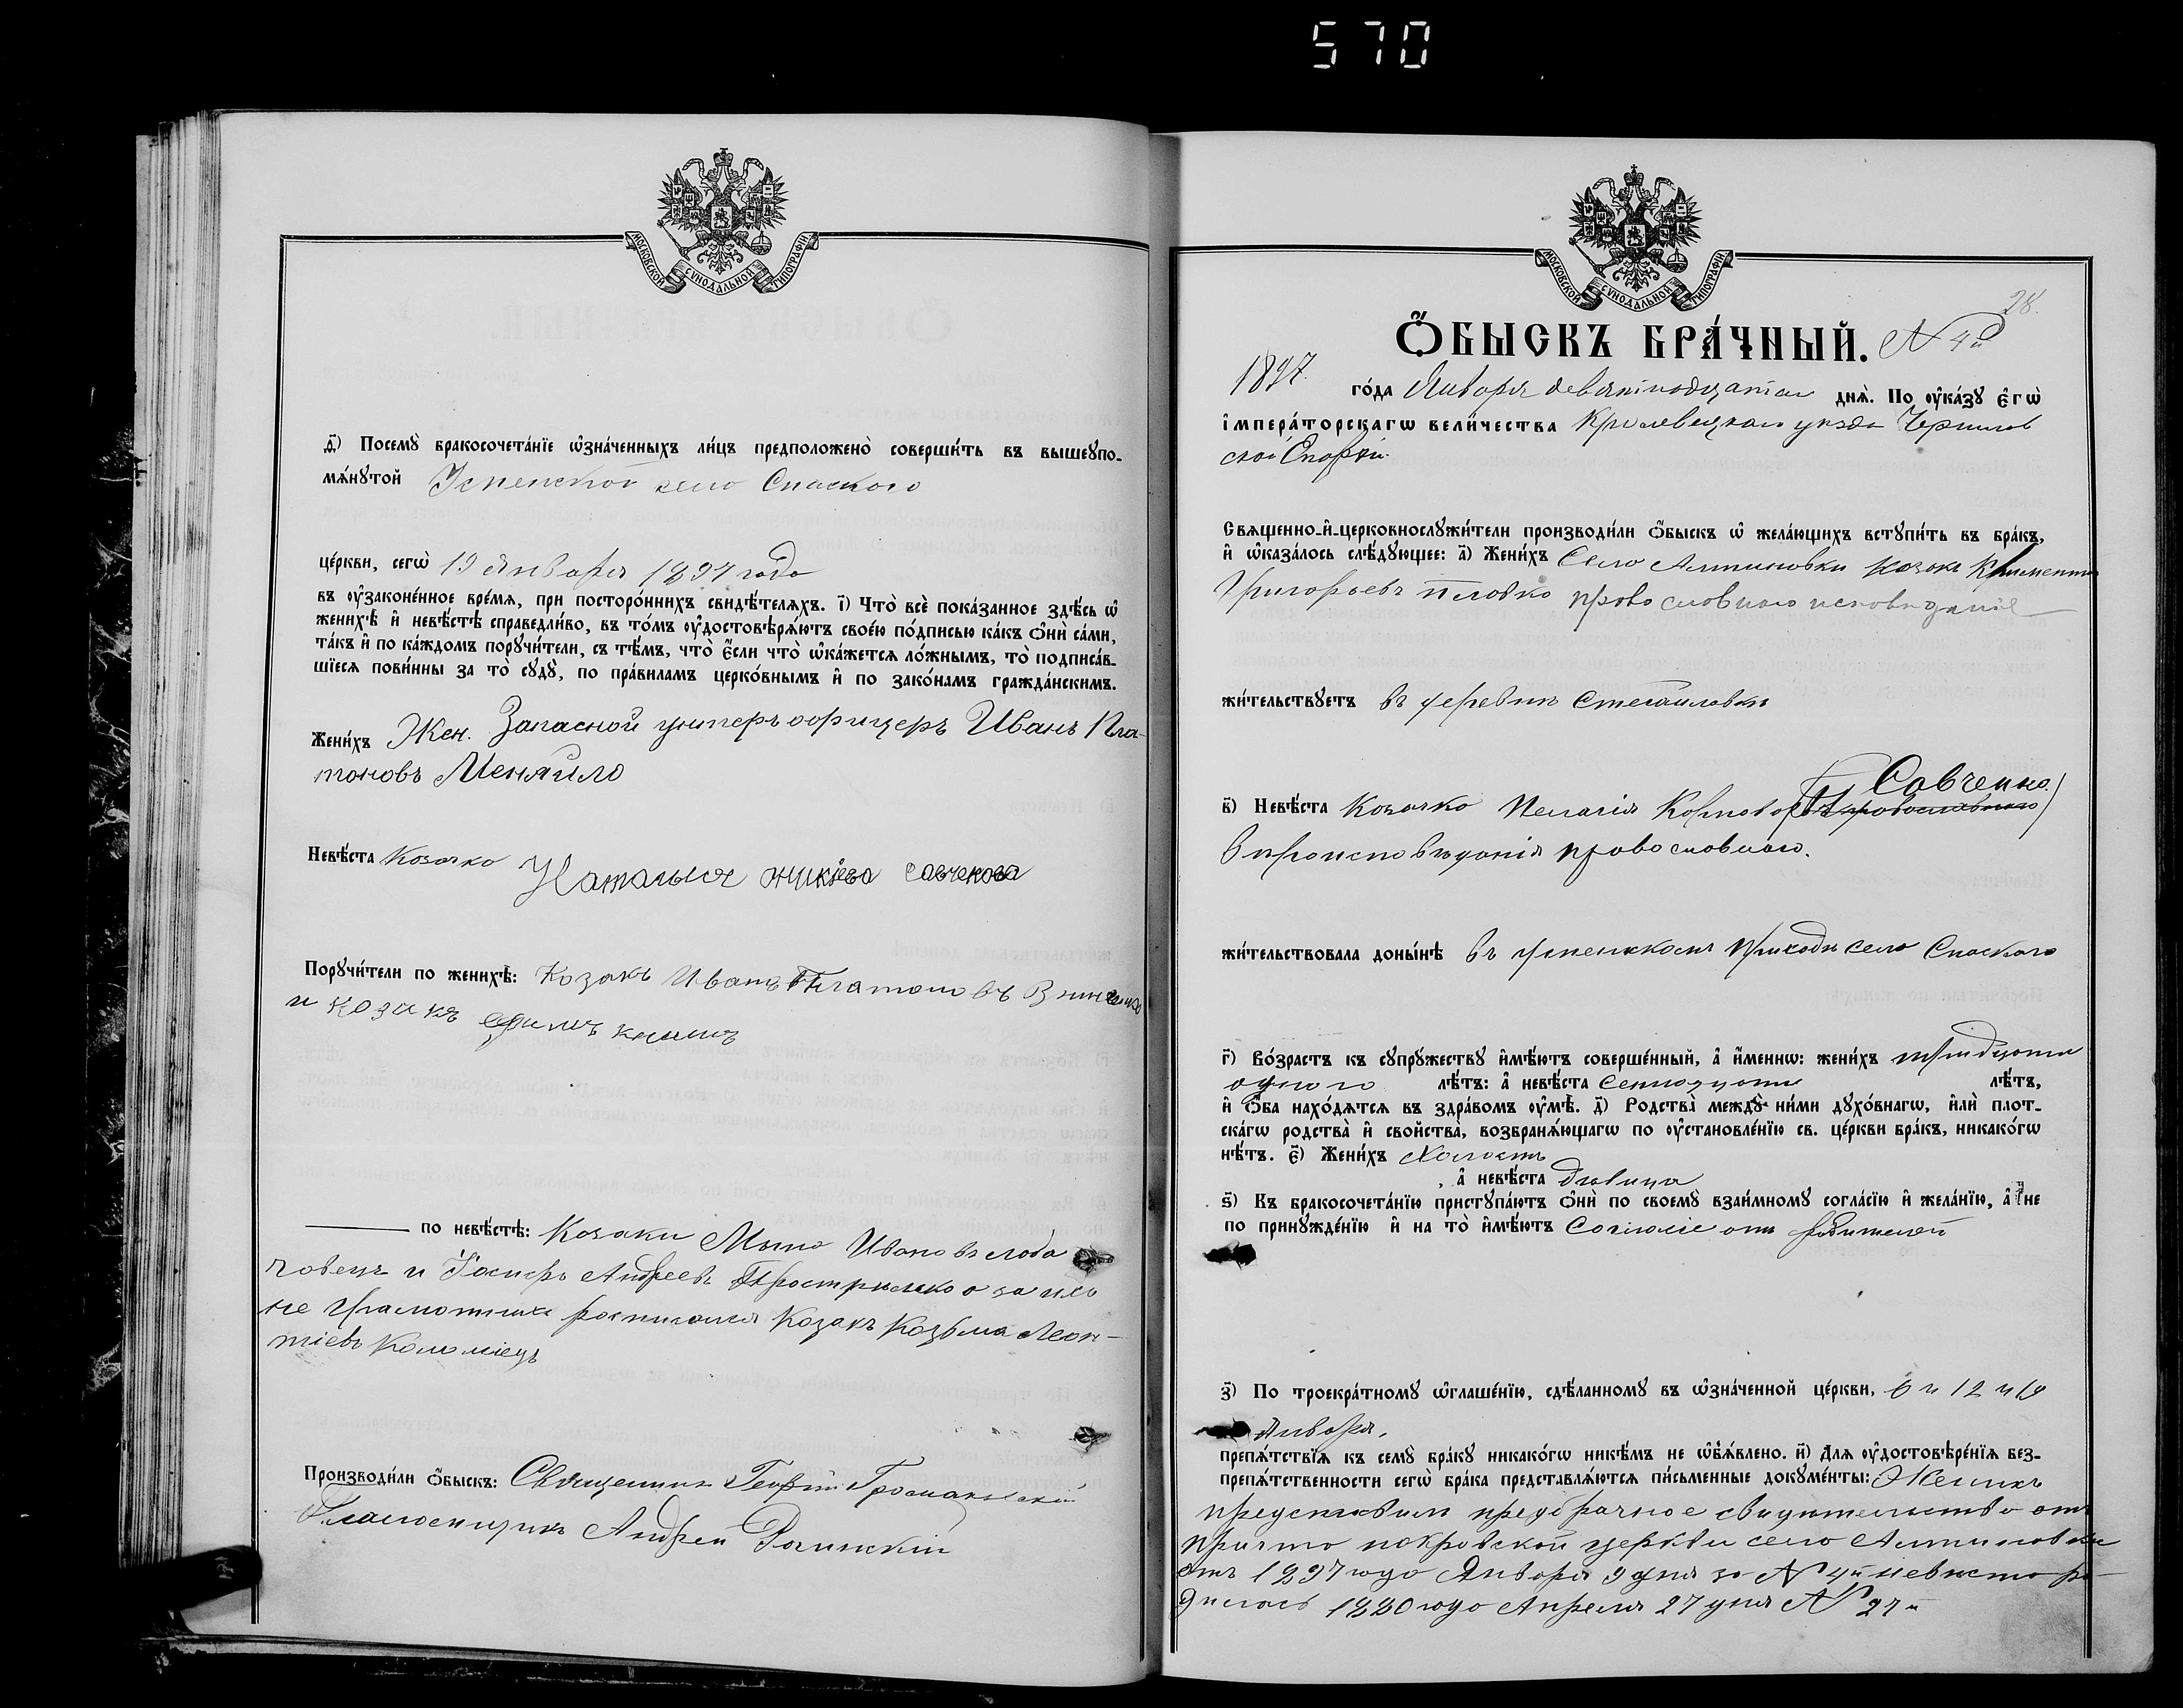 570
МОСКОВСКОЙ СѴНОДАЛЬНОЙ ТИПОГРАФІИ
д҃) Посемꙋ̀ бракосочета́нїе ѡ҆зна́ченныхъ ли́цъ предположено̀ соверши́ть въ вышеꙋпо-
мѧ́нꙋтой Успенской села Спаского
це́ркви, сегѡ̀ 19 Января 1897 года
въ ᲂу҆зако́ненное вре́мѧ, при посторо́ннихъ свидѣ́телѧхъ. і҃) Что̀ всѐ пока́занное здѣ́сь ѡ҆
женихѣ̀ и҆ невѣ́стѣ справедли́во, въ то́мъ ᲂу҆достовѣрѧ́ютъ свое́ю по́дписью ка́къ ѻ҆нѝ са́ми,
та́къ и҆ по ка́ждомъ порꙋчи́тели, съ тѣ́мъ, что̀ є҆́сли что̀ ѡ҆ка́жетсѧ ло́жнымъ, то̀ подписа́в-
шїесѧ пови́нны за то̀ сꙋдꙋ̀, по пра́виламъ церко́внымъ и҆ по зако́намъ гражда́нскимъ.
Жени́хъ Жен. Запасной унтеръ офицеръ Иванъ Пла-
тоновъ Меняйло
Невѣ́ста Козачка Наталия
Порꙋчи́тели по женихѣ̀: Козакъ Иванъ Платоновъ
и козакъ Ефимъ
по невѣ́стѣ: Козаки Ивановъ Лоба
човецъ и Андреевъ а за ихъ
не грамотныхъ росписался Козакъ Козьма Леон-
тіевъ Коломіецъ
Производи́ли ѻ҆́быскъ: Священникъ Георгій
Псаломщикъ Андрей
МОСКОВСКОЙ СѴНОДАЛЬНОЙ ТИПОГРАФІИ
28.
Ѻ҆́БЫСКЪ БРА́ЧНЫЙ. N 4й
1897. го́да Января девятнадцатаго днѧ̀. По ᲂу҆ка́зꙋ є҆гѡ̀
і҆мпера́торскагѡ вели́чества Кролевецкаго уезда Чернигов
ской Епархіи
Свѧще́нно-и҆-церковнослꙋжи́тели производи́ли ѻ҆́быскъ ѡ҆ жела́ющихъ встꙋпи́ть въ бра́къ,
и҆ ѡ҆каза́лось слѣ́дꙋющее: а҃) Жени́хъ Села Алтиновки козакъ Климентій
Григорьевъ православнаго исповеданія
жи́тельствꙋетъ въ деревни
в҃) Невѣ́ста Козачка Пелагія Карпова Савченко.
вероисповеданія православнаго.
жи́тельствовала доны́нѣ въ Успенскомъ приходе села Спаского
г҃) Во́зрастъ къ сꙋпрꙋ́жествꙋ и҆мѣ́ютъ соверше́нный, а҆ и҆́меннѡ: жени́хъ тридцати
одного лѣ́тъ: а҆ невѣ́ста лѣ́тъ,
и҆ ѻ҆́ба нахо́дѧтсѧ въ здра́вомъ ᲂу҆мѣ̀. д҃) Родства̀ междꙋ̀ ни́ми дꙋхо́внагѡ, и҆лѝ плот-
ска́гѡ родства̀ и҆ свойства̀, возбранѧ́ющагѡ по ᲂу҆становле́нїю св. це́ркви бра́къ, никако́гѡ
нѣ́тъ. є҃) Жени́хъ Холостъ
а҆ невѣ́ста Девица
ѕ҃) Къ бракосочета́нїю пристꙋпа́ютъ ѻ҆нѝ по своемꙋ̀ взаи́мномꙋ согла́сїю и҆ жела́нїю, а҆ не
по принꙋжде́нїю и҆ на то̀ и҆мѣ́ютъ Согласіе отъ родителей
з҃) По троекра́тномꙋ ѡ҆глаше́нїю, сдѣ́ланномꙋ въ ѡ҆зна́ченной це́ркви, 6 и 12 и 19
Января,
препѧ́тствїѧ къ семꙋ̀ бра́кꙋ никако́гѡ никѣ́мъ не ѡ҆б̾ѧ́влено. и҃) Длѧ ᲂу҆достовѣре́нїѧ без-
препѧ́тственности сегѡ̀ бра́ка представлѧ́ютсѧ пи́сьменные докꙋме́нты: Женихъ
представилъ предбрачное свидетельство отъ
причта покровской церкви села Алтиновки
отъ 1897 года Января 9 дня за N 4й невеста ро-
дилась 1880 года Апреля 27 дня N 27й